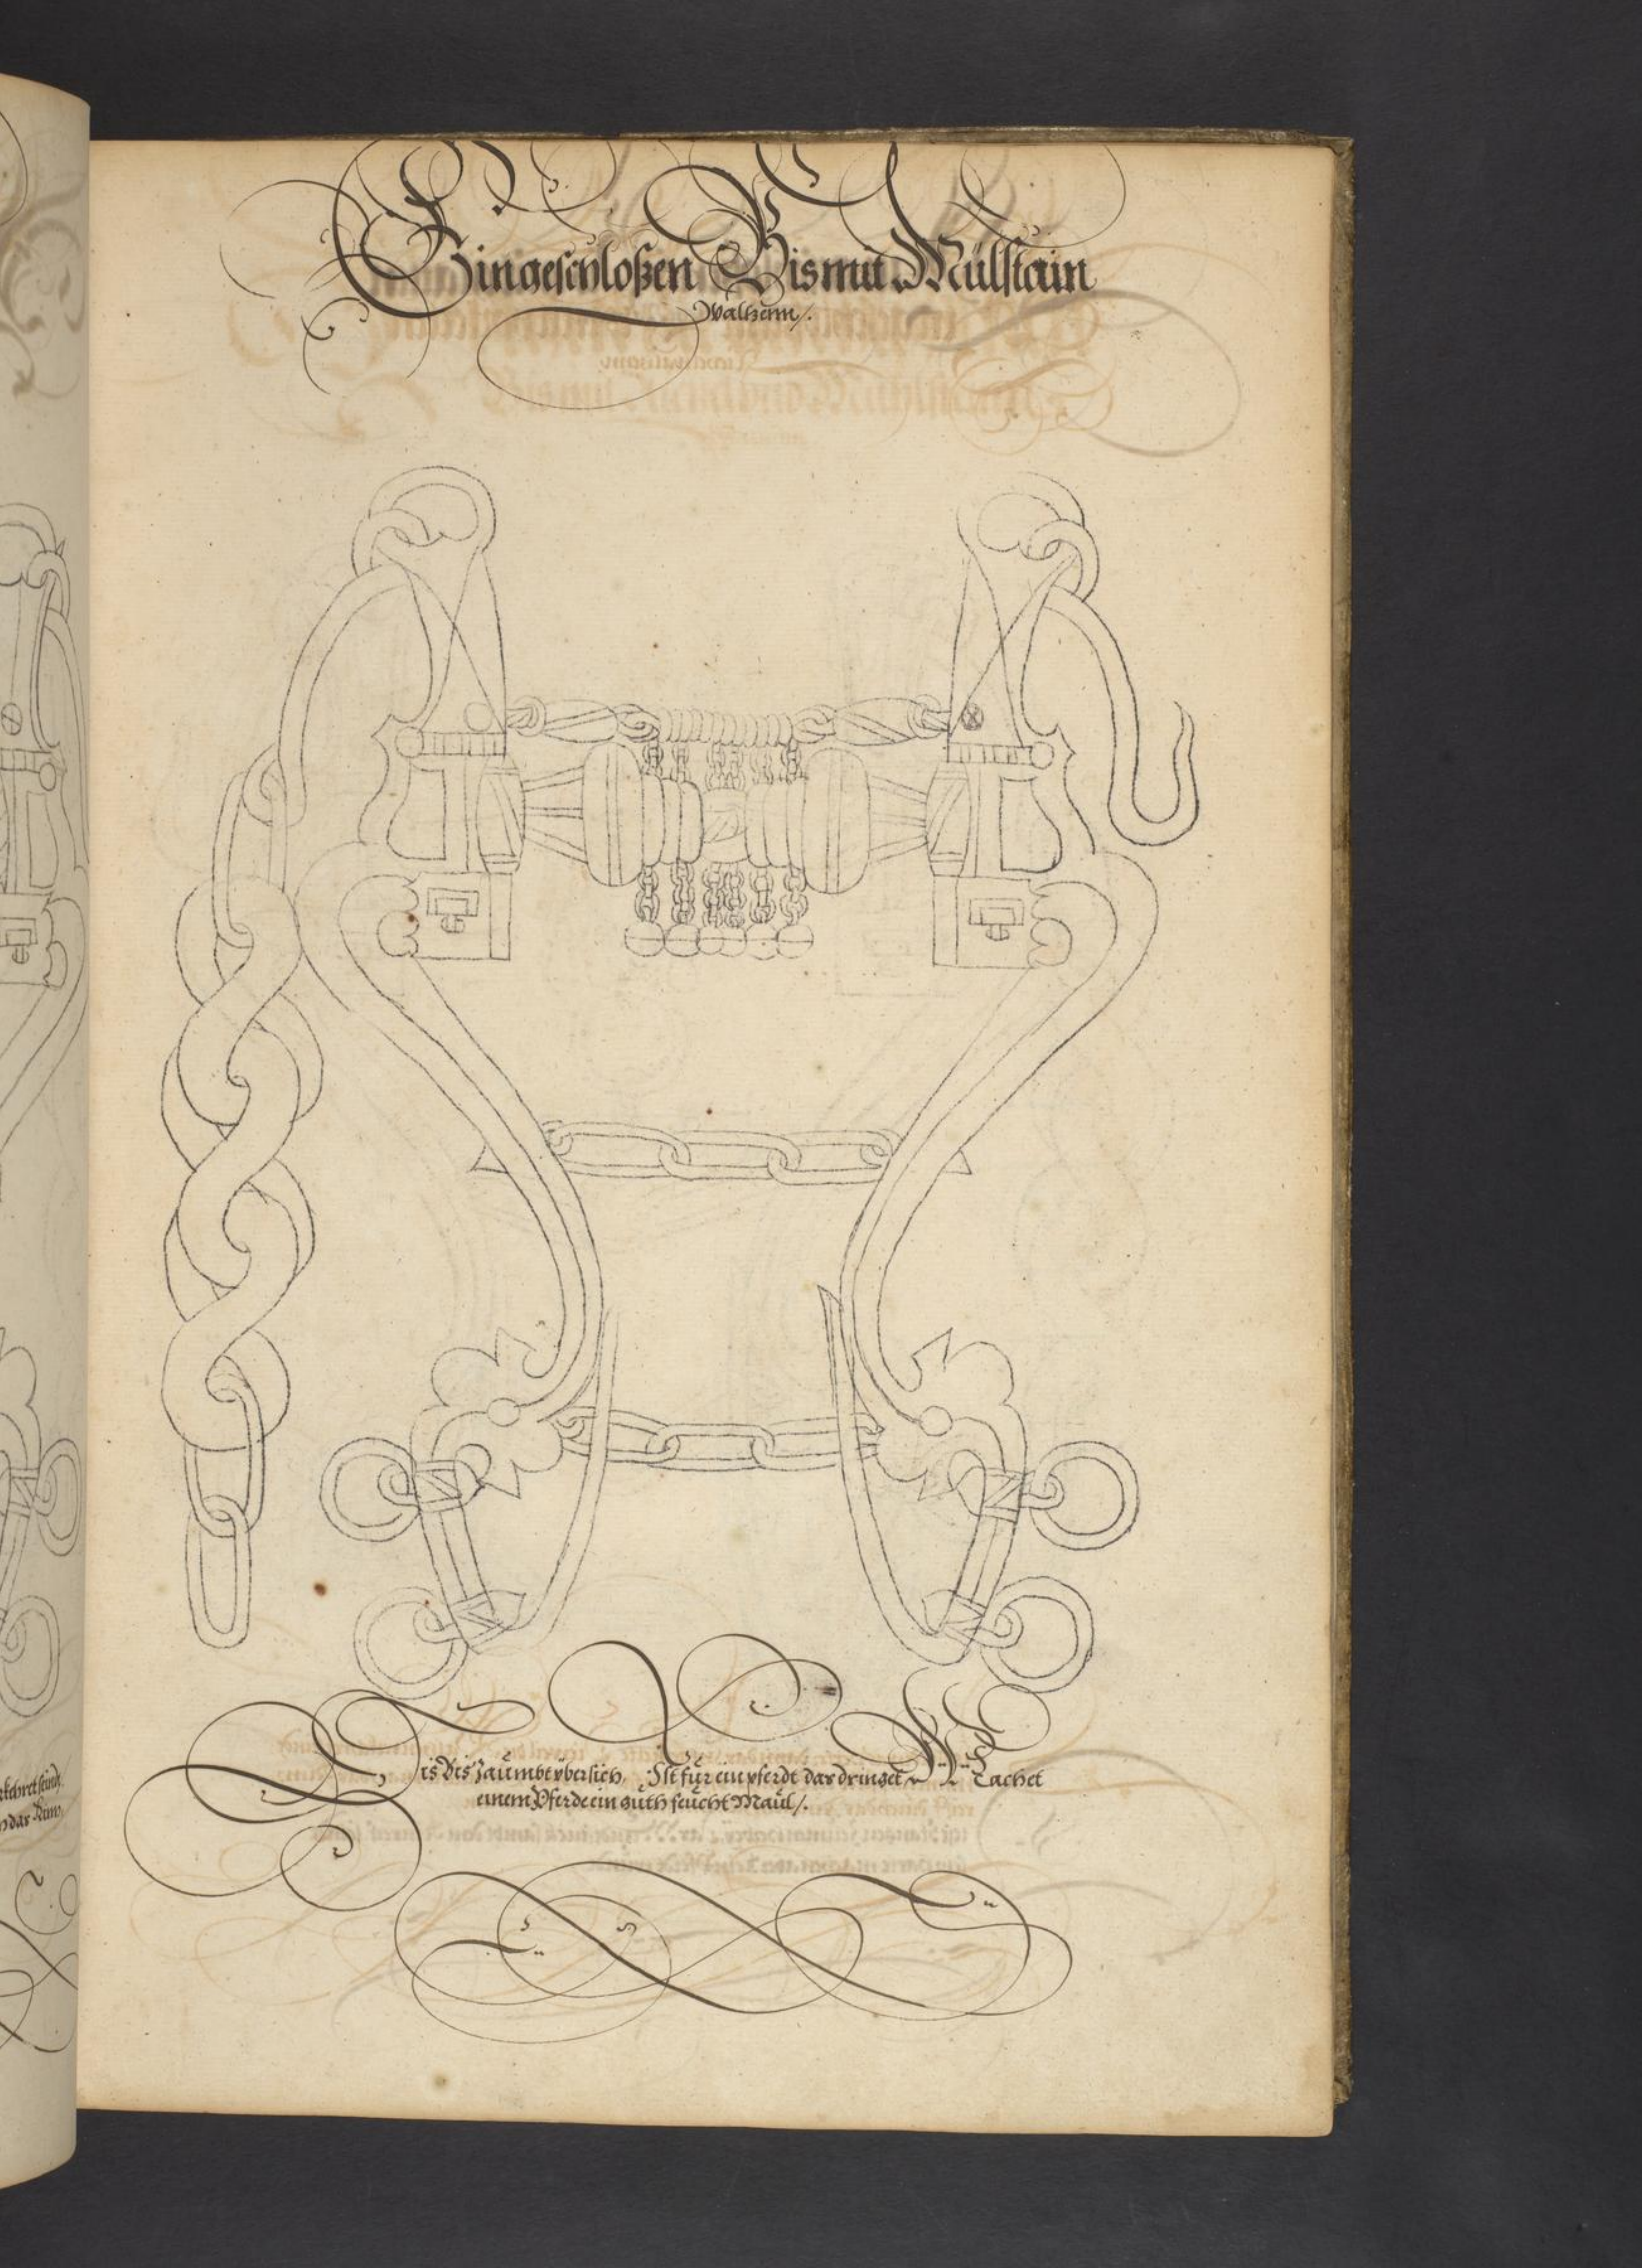 Ein geschloßen Bis mit Mülstain
Walhenn /.
Dis Bis Zäumbt ybersich, Ist für ein pferdt das dringet, Machet
einem Pferde ein gůth feůcht Maůl /.